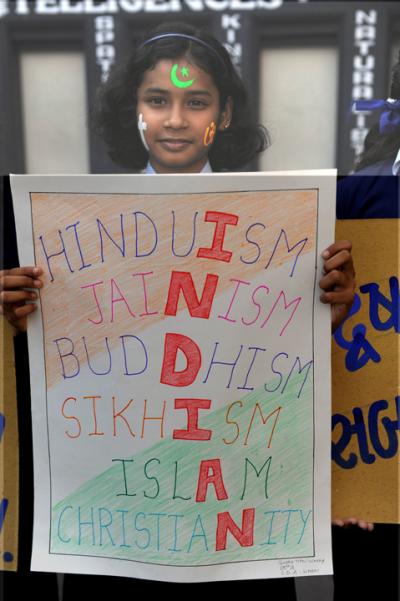 TELLIGENCES
SPAT
KIN
NATURALIS
HINDUISM
JAINISM
BUDDHISM
SIKHISM
ISLAM
CHRISTIANITY